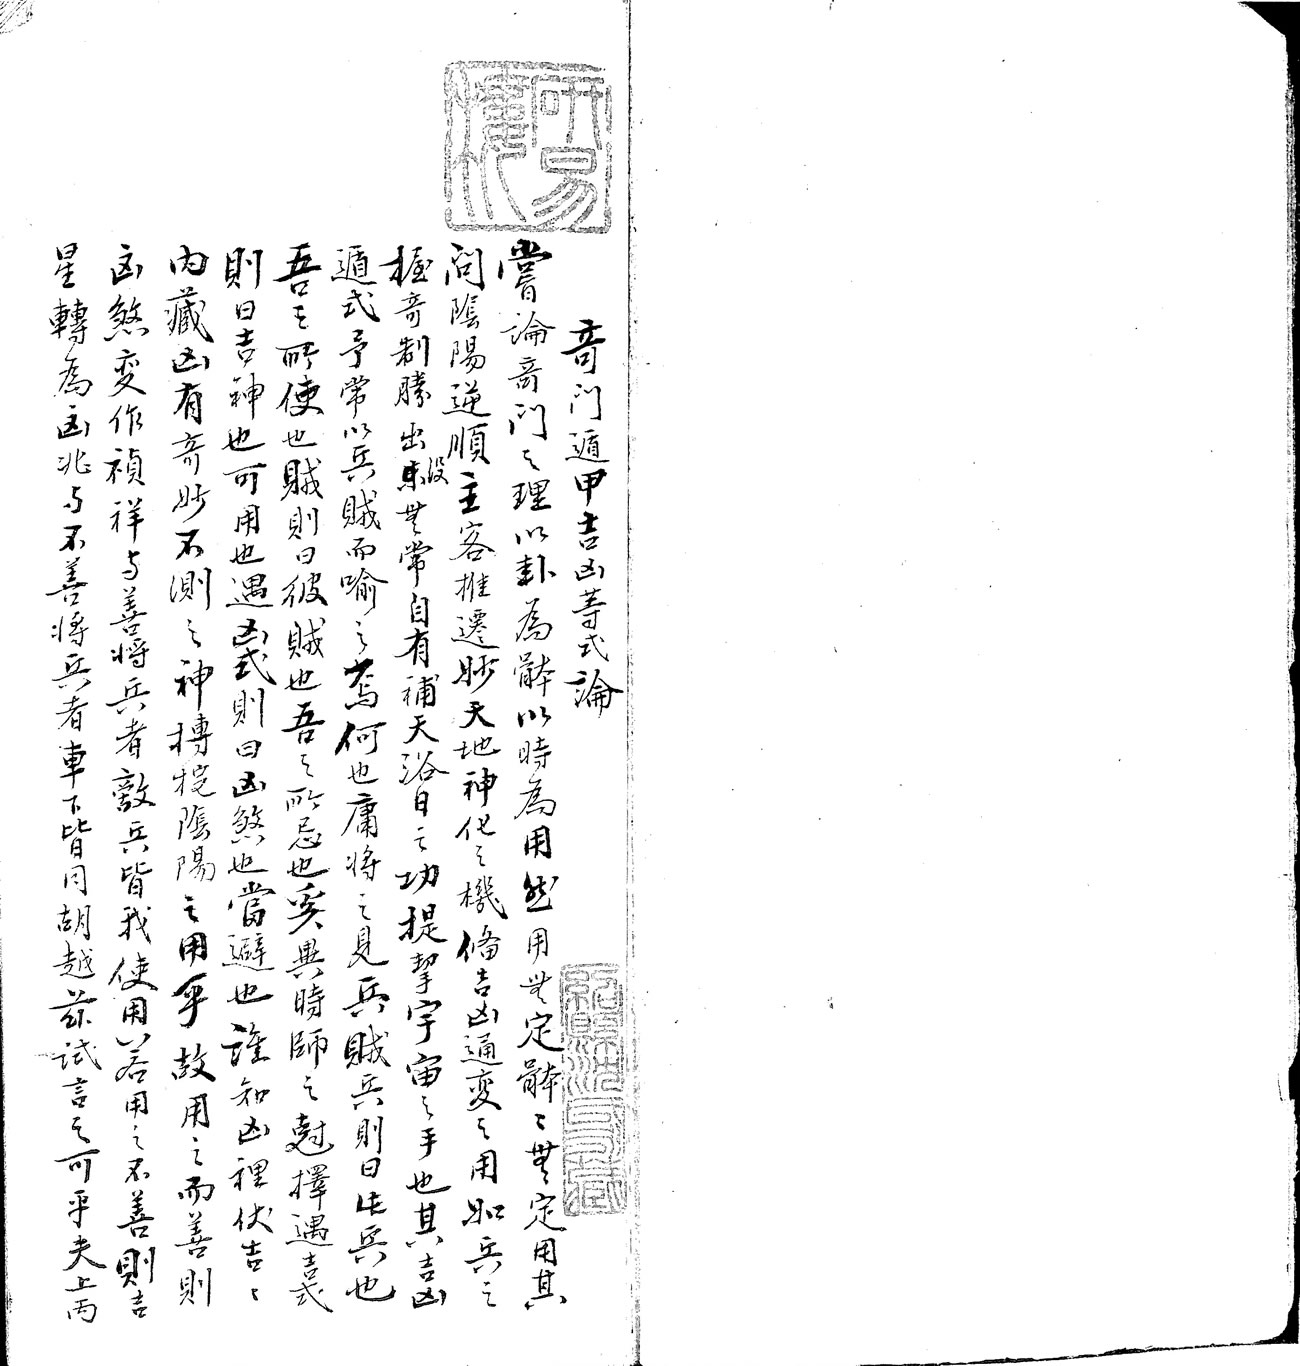 研易樓
奇門遁甲吉凶等式論
嘗論奇門之理以卦為體以時為用然用無定體〻無定用其
間陰陽逆順主客推遷妙天地神化之機備吉凶通變之用如兵之
握奇制勝出沒無常自有補天浴日之功提挈宇宙之手也其吉凶
遁式予常以兵賊而喻之焉何也庸將之見兵賊兵則曰此兵也
吾之所使也賊則曰彼賊也吾之所忌也奚異時師之尅擇遇吉式
則曰吉神也可用也遇凶式則曰凶煞也當避也誰知凶裡伏吉〻
內藏凶有奇妙不測之神摶捖陰陽之用乎故用之而善則
凶煞變作禎祥与善將兵者敵兵皆我使用若用之不善則吉
星轉為凶兆与不善將兵者車下皆同胡越茲試言之可乎夫上丙